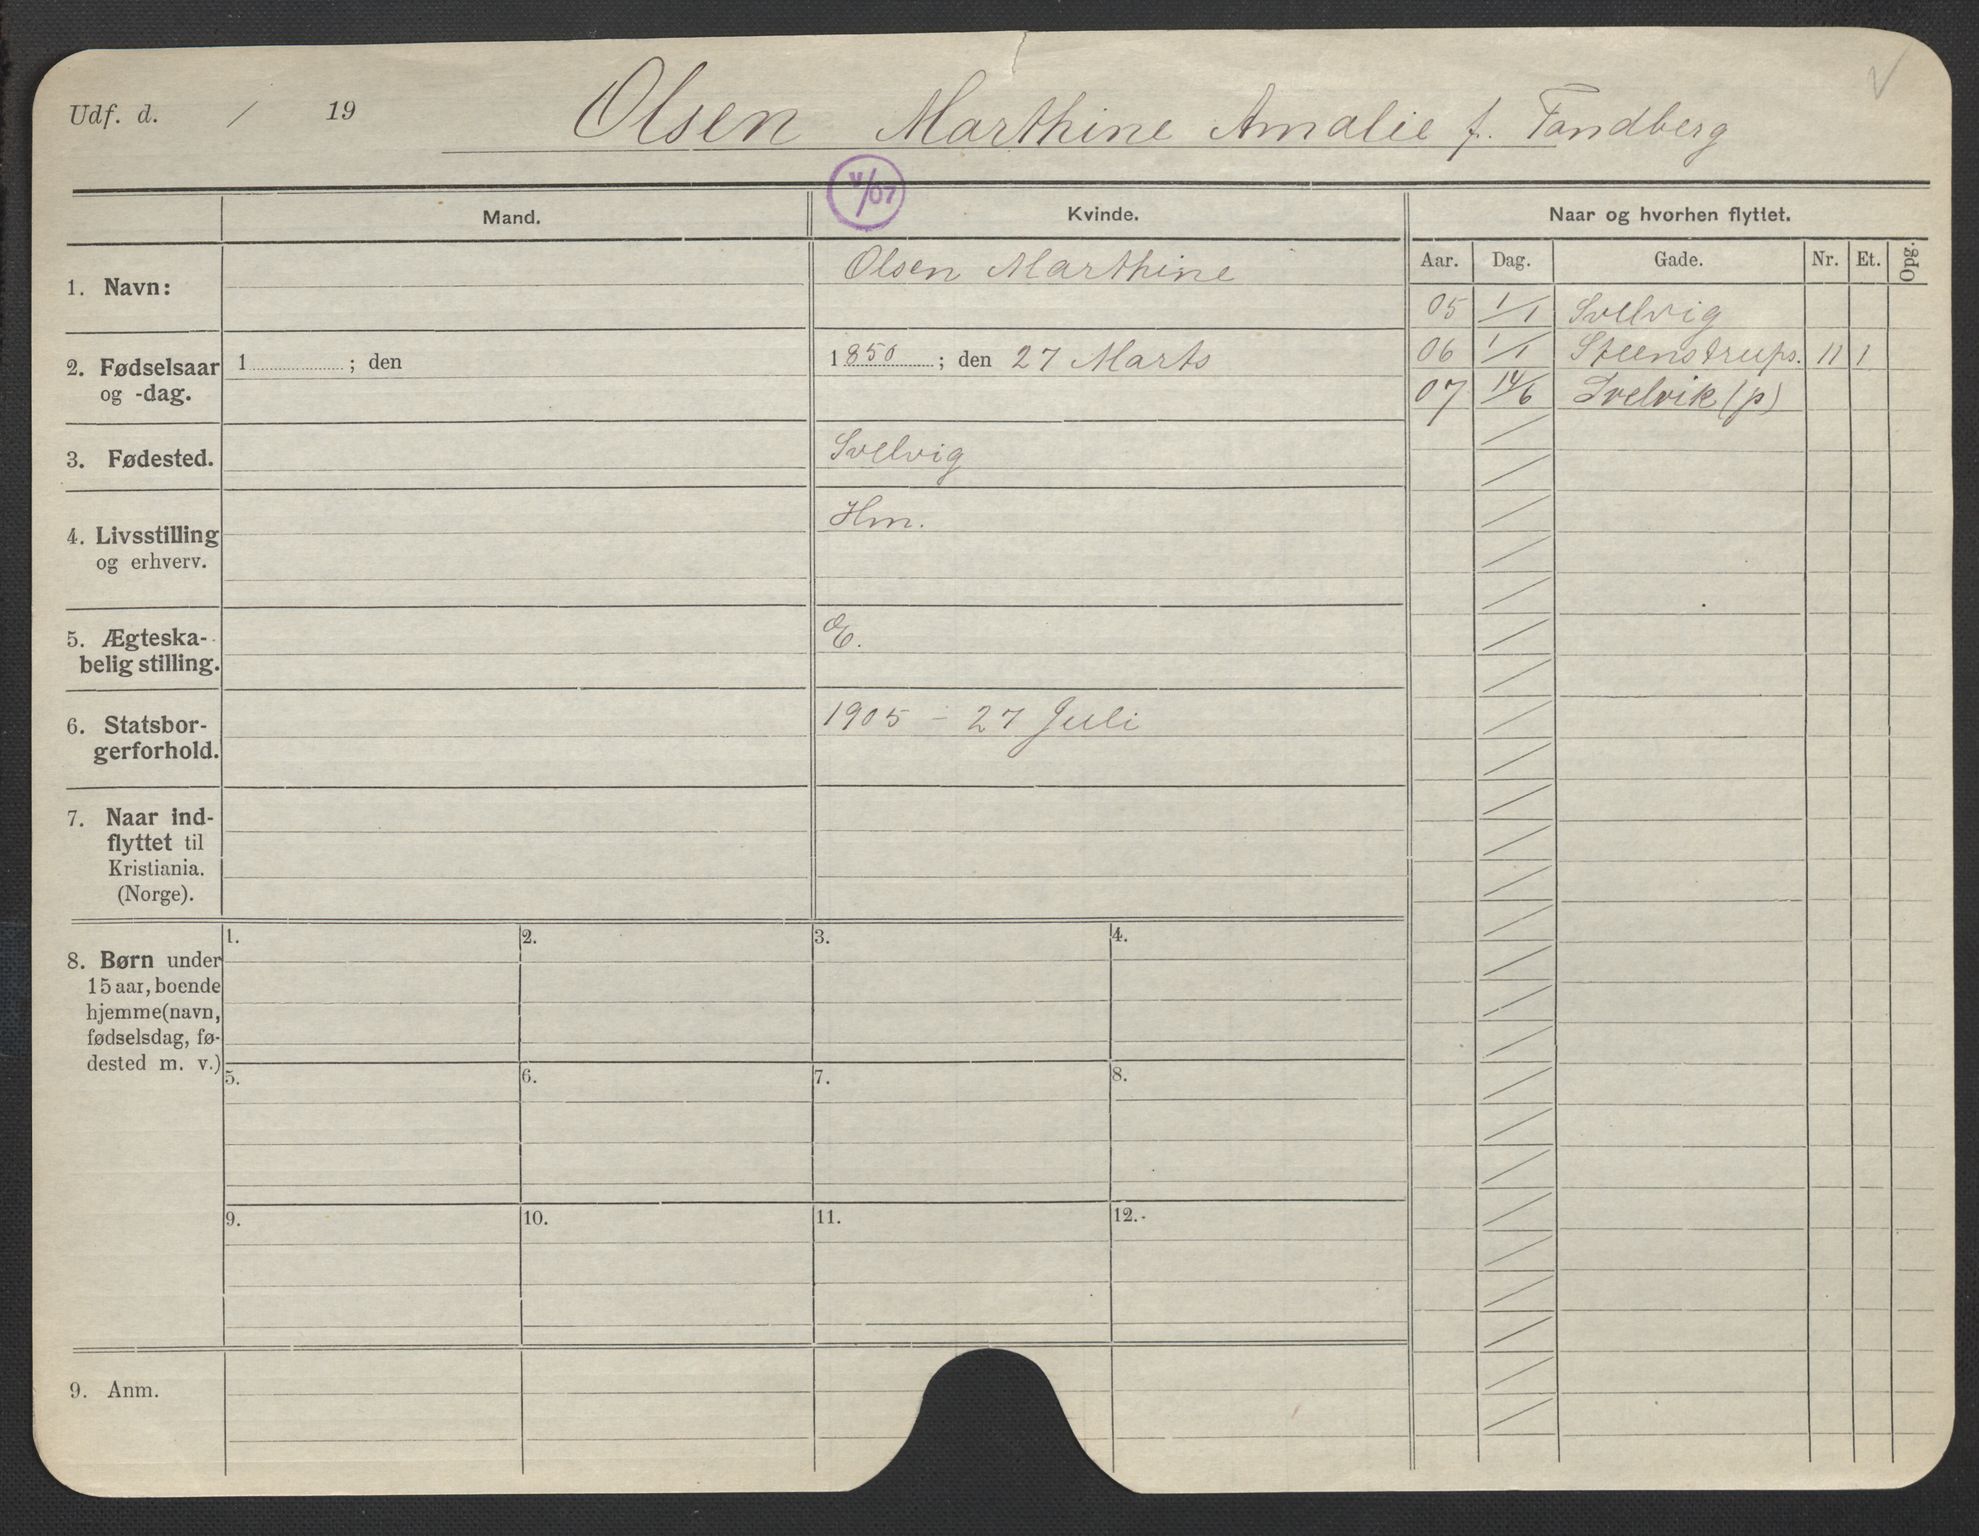 Udf. d. / 19 Olsen Marthine Amalie f. Tandberg
V/07
Mand. Kvinde. Naar og hvorhen flyttet.
Aar. Dag. Gade. Nr. Et. Opg.
1. Navn: Olsen Marthine
05 1/1 Svelvig
06 1/1 Steenstrups. 11 1
07 14/6 Svelvik (p)
2. Fødselsaar og -dag. 1 ; den 1850 ; den 27 Marts
3. Fødested. Svelvig
4. Livsstilling og erhverv. Hm.
5. Ægteska-
belig stilling. E.
6. Statsbor-
gerforhold. 1905 - 27 Juli
7. Naar ind-
flyttet til
Kristiania.
(Norge).
8. Børn under
15 aar, boende
hjemme (navn,
fødselsdag, fø-
dested m. v.)
1. 2. 3. 4.
5. 6. 7. 8.
9. 10. 11. 12.
9. Anm.